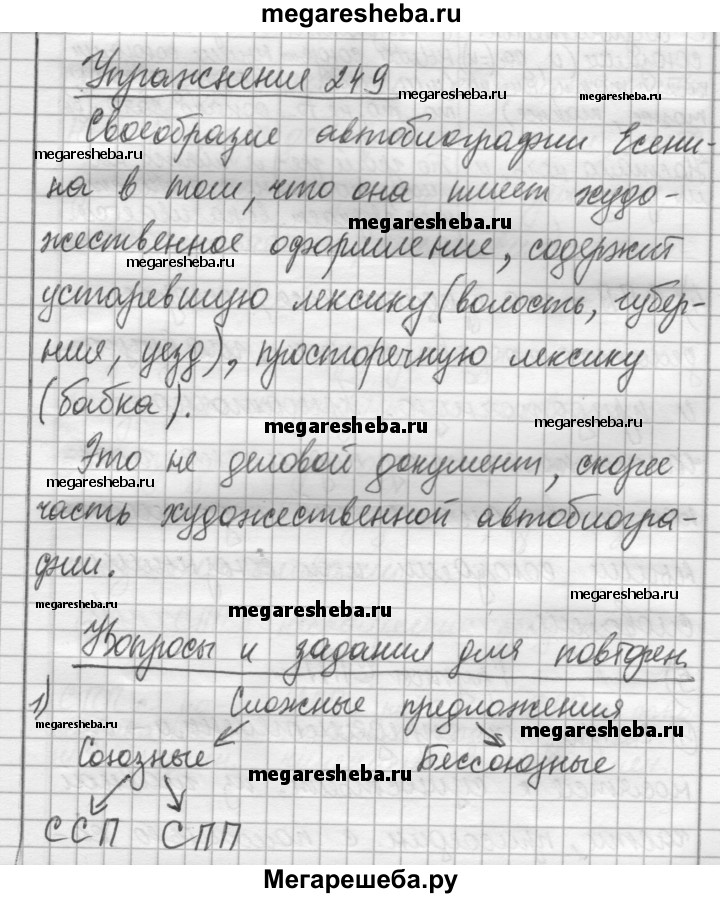 megaresheba.ru
Упражнение 249
megaresheba.ru megaresheba.ru
Своеобразие автобиографии Есени-
megaresheba.ru
на в том, что она имеет худо-
megaresheba.ru
жественное оформление, содержит
megaresheba.ru
устаревшую лексику (волость, губер-
ния, уезд), просторечную лексику
(бабка).
megaresheba.ru megaresheba.ru
Это не деловой документ, скорее
megaresheba.ru
часть художественной автобиогра-
megaresheba.ru
фии.
megaresheba.ru megaresheba.ru megaresheba.ru
Вопросы и задания для повторен.
1) Сложные предложения
megaresheba.ru megaresheba.ru
Союзные Бессоюзные
megaresheba.ru
ССП СПП
megaresheba.ru
Мегарешеба.ру